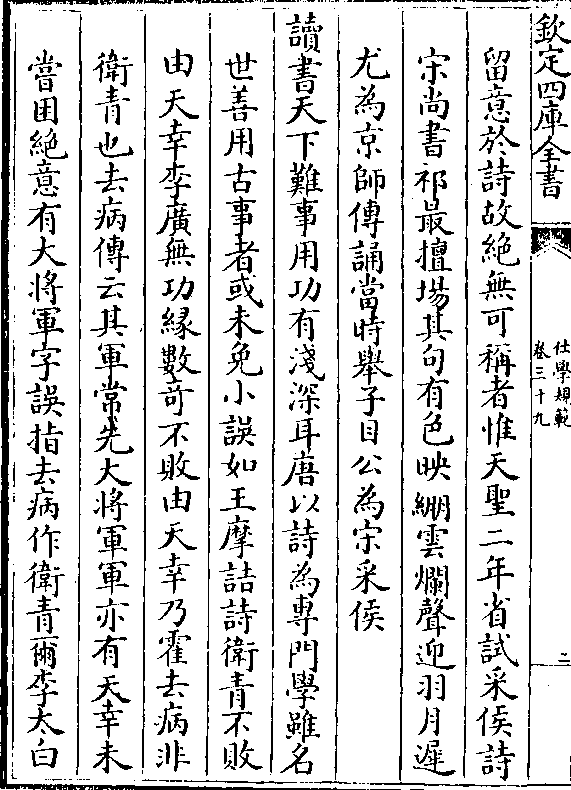 欽定四庫全書
仕學規範
卷三十九
二
留意於詩故絶無可稱者惟天聖二年省試采侯詩
宋尚書祁最擅場其句有色映堋雲爛聲迎羽月遲
尤為京師傳誦當時舉子目公為宋采侯
讀書天下難事用功有淺深耳唐以詩為專門學雖名
世善用古事者或未免小誤如王摩詰詩衛青不敗
由天幸李廣無功緣數竒不敗由天幸乃霍去病非
衛青也去病傳云其軍常先大將軍軍亦有天幸未
嘗困絶意有大將軍字誤指去病作衛青爾李太白